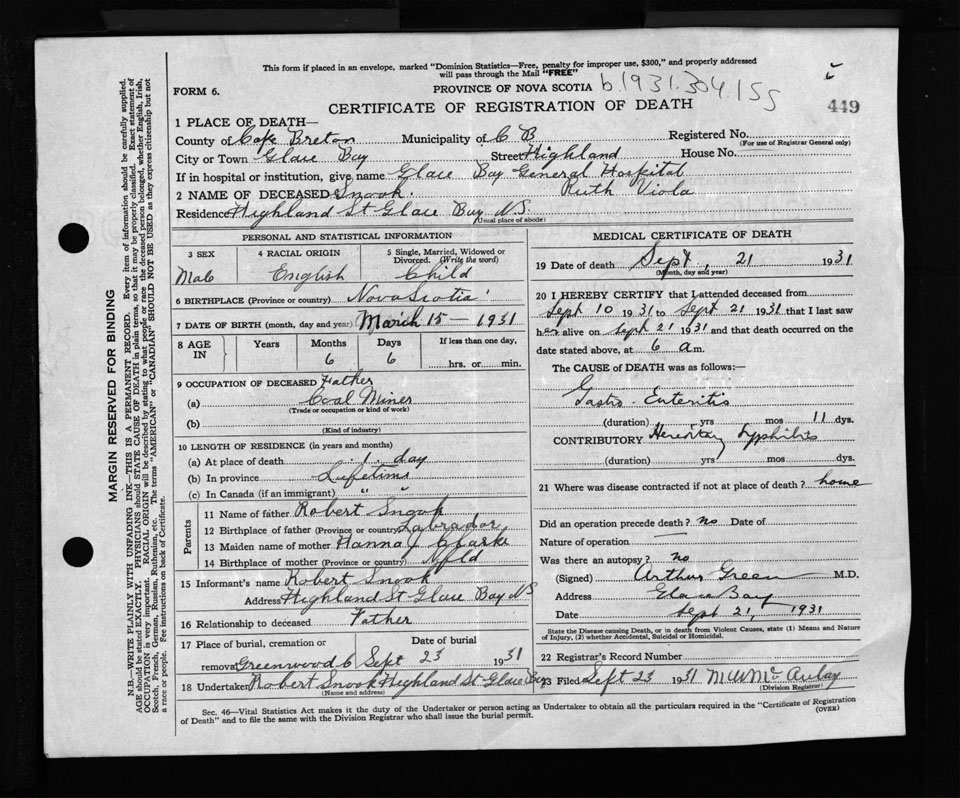 This form if placed in an envelope, marked "Dominion Statistics—Free, penalty for improper use, $300," and properly addressed
will pass through the Mail "FREE"
FORM 6.
PROVINCE OF NOVA SCOTIA b.1931.304.155
449
CERTIFICATE OF REGISTRATION OF DEATH
1 PLACE OF DEATH—
County of Cape Breton Municipality of C B Registered No.
(For use of Registrar General only)
City or Town Glace Bay Street Highland House No.
If in hospital or institution, give name Glace Bay General Hospital
2 NAME OF DECEASED Snook. Ruth Viola
Residence Highland St Glace Bay N.S.
(Usual place of abode)
PERSONAL AND STATISTICAL INFORMATION
3 SEX 4 RACIAL ORIGIN 5 Single, Married, Widowed or
Divorced. (Write the word)
English Child
6 BIRTHPLACE (Province or country) Nova Scotia
7 DATE OF BIRTH (month, day and year) March 15 — 1931
8 AGE IN Years Months Days If less than one day,
6 6 hrs. or min.
9 OCCUPATION OF DECEASED Father
(a) Coal Miner
(Trade or occupation or kind of work)
(b)
(Kind of industry)
10 LENGTH OF RESIDENCE (in years and months)
(a) At place of death 1 day
(b) In province Lifetime
(c) In Canada (if an immigrant) " "
Parents
11 Name of father Robert Snook
12 Birthplace of father (Province or country) Labrador
13 Maiden name of mother Hanna J Clarke
14 Birthplace of mother (Province or country) Nfld
15 Informant's name Robert Snook
Address Highland St Glace Bay NS
16 Relationship to deceased Father
17 Place of burial, cremation or Date of burial
removal Greenwood C Sept 23 1931
18 Undertaker Robert Snook Highland St Glace Bay
(Name and address)
MEDICAL CERTIFICATE OF DEATH
19 Date of death Sept. 21 1931
(Month, day and year)
20 I HEREBY CERTIFY that I attended deceased from
Sept 10 1931 to Sept 21 1931 that I last saw
her alive on Sept 21 1931 and that death occurred on the
date stated above, at 6 a m.
The CAUSE of DEATH was as follows:—
Gastro-Enteritis
(duration) yrs mos 11 dys.
CONTRIBUTORY Hereditary Syphilis
(duration) yrs mos dys.
21 Where was disease contracted if not at place of death? home
Did an operation precede death? no Date of
Nature of operation —
Was there an autopsy? no
(Signed) Arthur Green M.D.
Address Glace Bay
Date Sept 21, 1931
State the Disease causing Death, or in death from Violent Causes, state (1) Means and Nature
of Injury, (2) whether Accidental, Suicidal or Homicidal.
22 Registrar's Record Number
23 Filed Sept 23 1931 McAulay
(Division Registrar)
Sec. 46—Vital Statistics Act makes it the duty of the Undertaker or person acting as Undertaker to obtain all the particulars required in the "Certificate of Registration
of Death" and to file the same with the Division Registrar who shall issue the burial permit.
(OVER)
MARGIN RESERVED FOR BINDING
N.B.—WRITE PLAINLY WITH UNFADING INK—THIS IS A PERMANENT RECORD. Every item of information should be carefully supplied.
AGE should be stated EXACTLY. PHYSICIANS should STATE CAUSE OF DEATH in plain terms, so that it may be properly classified. Exact statement of
OCCUPATION is very important. RACIAL ORIGIN will be described by stating to what people or race the deceased person belonged, whether English, Irish,
Scotch, French, German, Russian, Ruthenian, etc. The terms "AMERICAN" or "CANADIAN" SHOULD NOT BE USED as they express citizenship but not
a race or people. See instructions on back of Certificate.